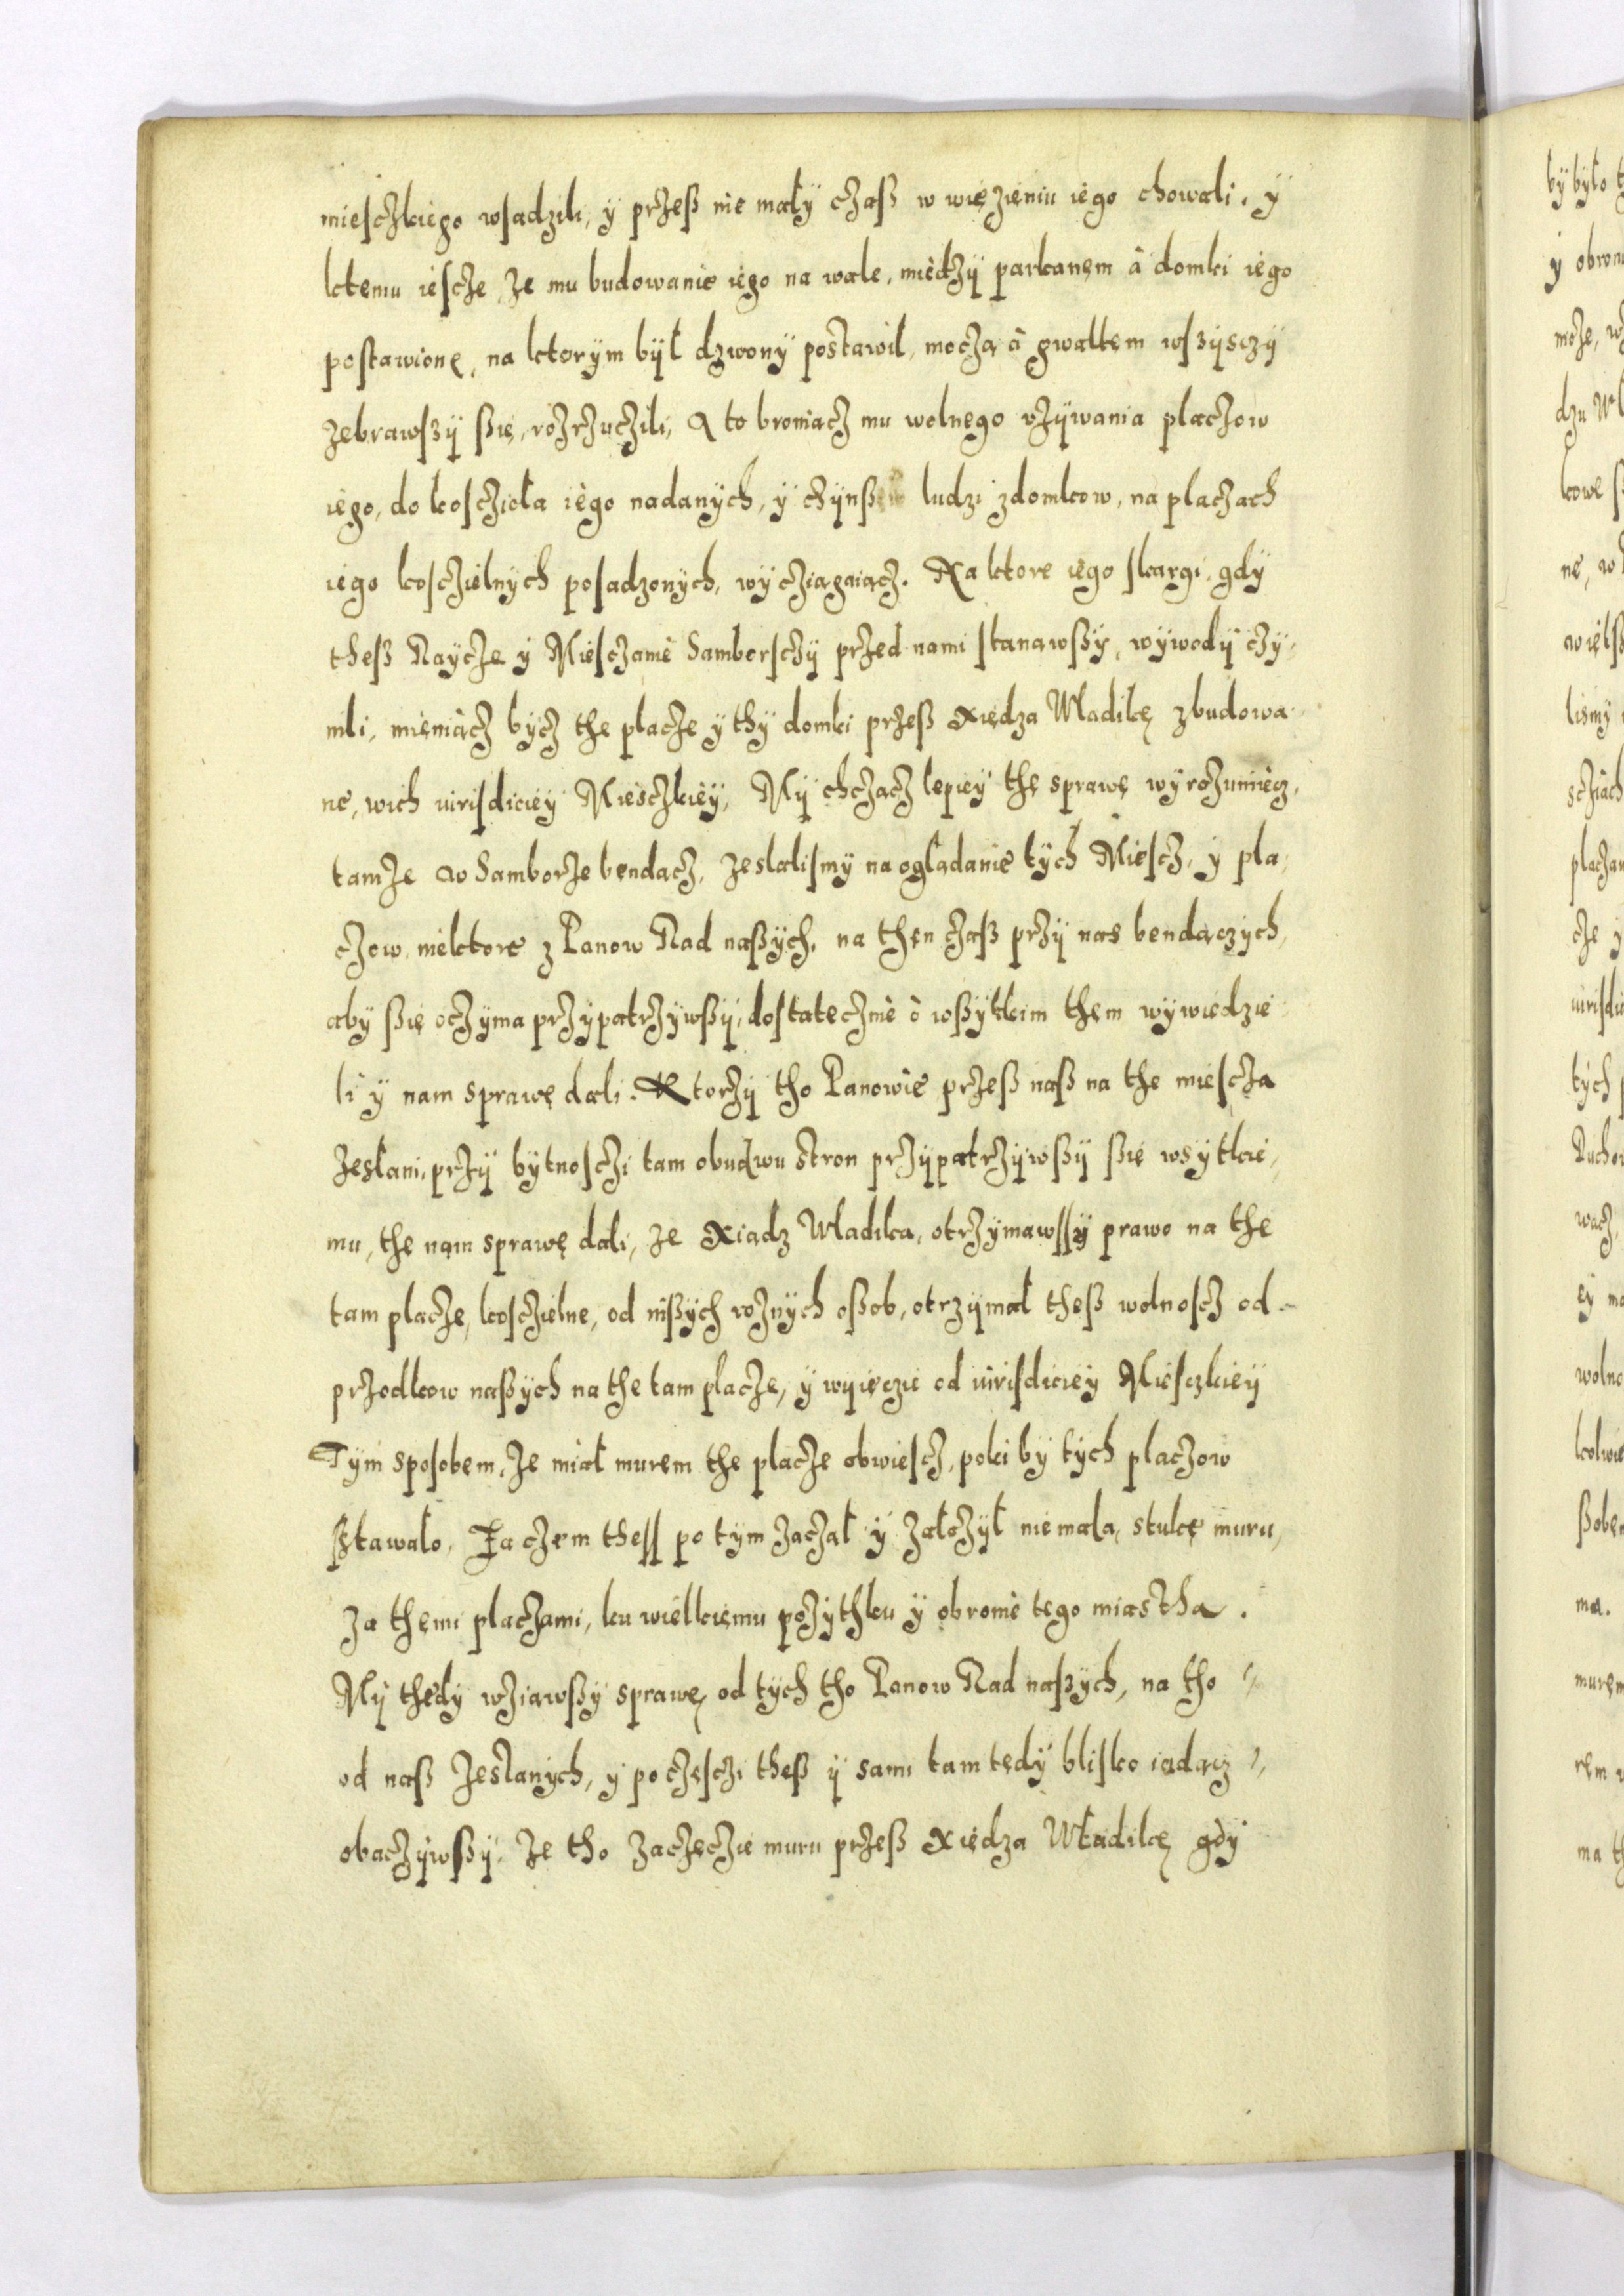 miesczkiego wsadzili, ÿ przeß nie małÿ czaß w więzieniu iego chowali. ÿ
ktemu iescze, ze mu budowanie iego na wale, miedzÿ parkanem à domki iego
postawione, na ktorÿm bÿł dzwonÿ postawił, moczą à gwałtem wszÿsczÿ
zebrawszÿ ßię, rozrzuczili, A to broniącz mu wolnego vzÿwania placzow
iego, do kosczioła iego nadanÿch, ÿ czÿnß ludzi zdomkow, na placzach
iego kosczielnÿch posadzonÿch, wÿcziągaiącz. Na ktore iego skargi, gdÿ
theß Raÿcze ÿ Miesczanie Samborsczÿ przed nami stanąwßÿ, wÿwodÿ czÿ-
nili, mieniącz bÿcz the placze ÿ thÿ domki przeß Xiędza Władikę zbudowa-
ne, wich iurisdiciеÿ Miesczkieÿ, Mÿ chczącz lepieÿ thę sprawę wÿrozumiecz,
tamze w Samborze bendącz, zeslalismÿ na oglądanie tÿch Miescz, ÿ pla-
czow, niektore z Panow Rad naßÿch, na then czaß przÿ nas bendączÿch,
abÿ ßię oczÿma przÿpatrzÿwßÿ, dostatecznie ò wßÿtkim them wÿwiedzie-
li ÿ nam sprawę dali. Ktorzÿ tho Panowie przeß naß na the miescza
zesłani, przÿ bÿtnosczi tam obudwu stron przÿpatrzÿwßÿ ßię wsÿtkie-
mu, thę nam sprawę dali, ze Xiądz Władika, otrzÿmawssÿ prawo na the
tam placze, kosczielne, od inßÿch roznÿch oßob, otrzÿmał theß wolnoscz od
przodkow naßÿch na the tam placze, ÿ wÿięczie od iurisdicieÿ Miesczkieÿ
Tÿm sposobem, ze miał murem the placze obwiescz, poki bÿ tÿch placzow
stawało, Zaczem thess po tÿm zacząl ÿ załozÿł niemałą, stukę muru,
za themi placzami, ku wielkiemu pozÿthku ÿ obronie tego miastha.
Mÿ thedÿ wziąwßÿ sprawę od tÿch tho Panow Rad naszÿch, na tho
od naß zesłanÿch, ÿ po częsczi theß ÿ sami tam tędÿ blisko iadącz
obaczÿwßÿ, ze tho zaczęczie muru przeß Xiędza Władikę gdÿ